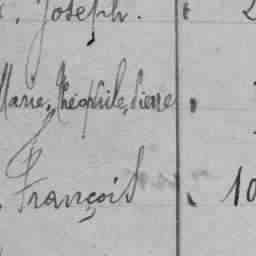 , Joseph. 2
Marie, Théophile, Pierre
, François 10